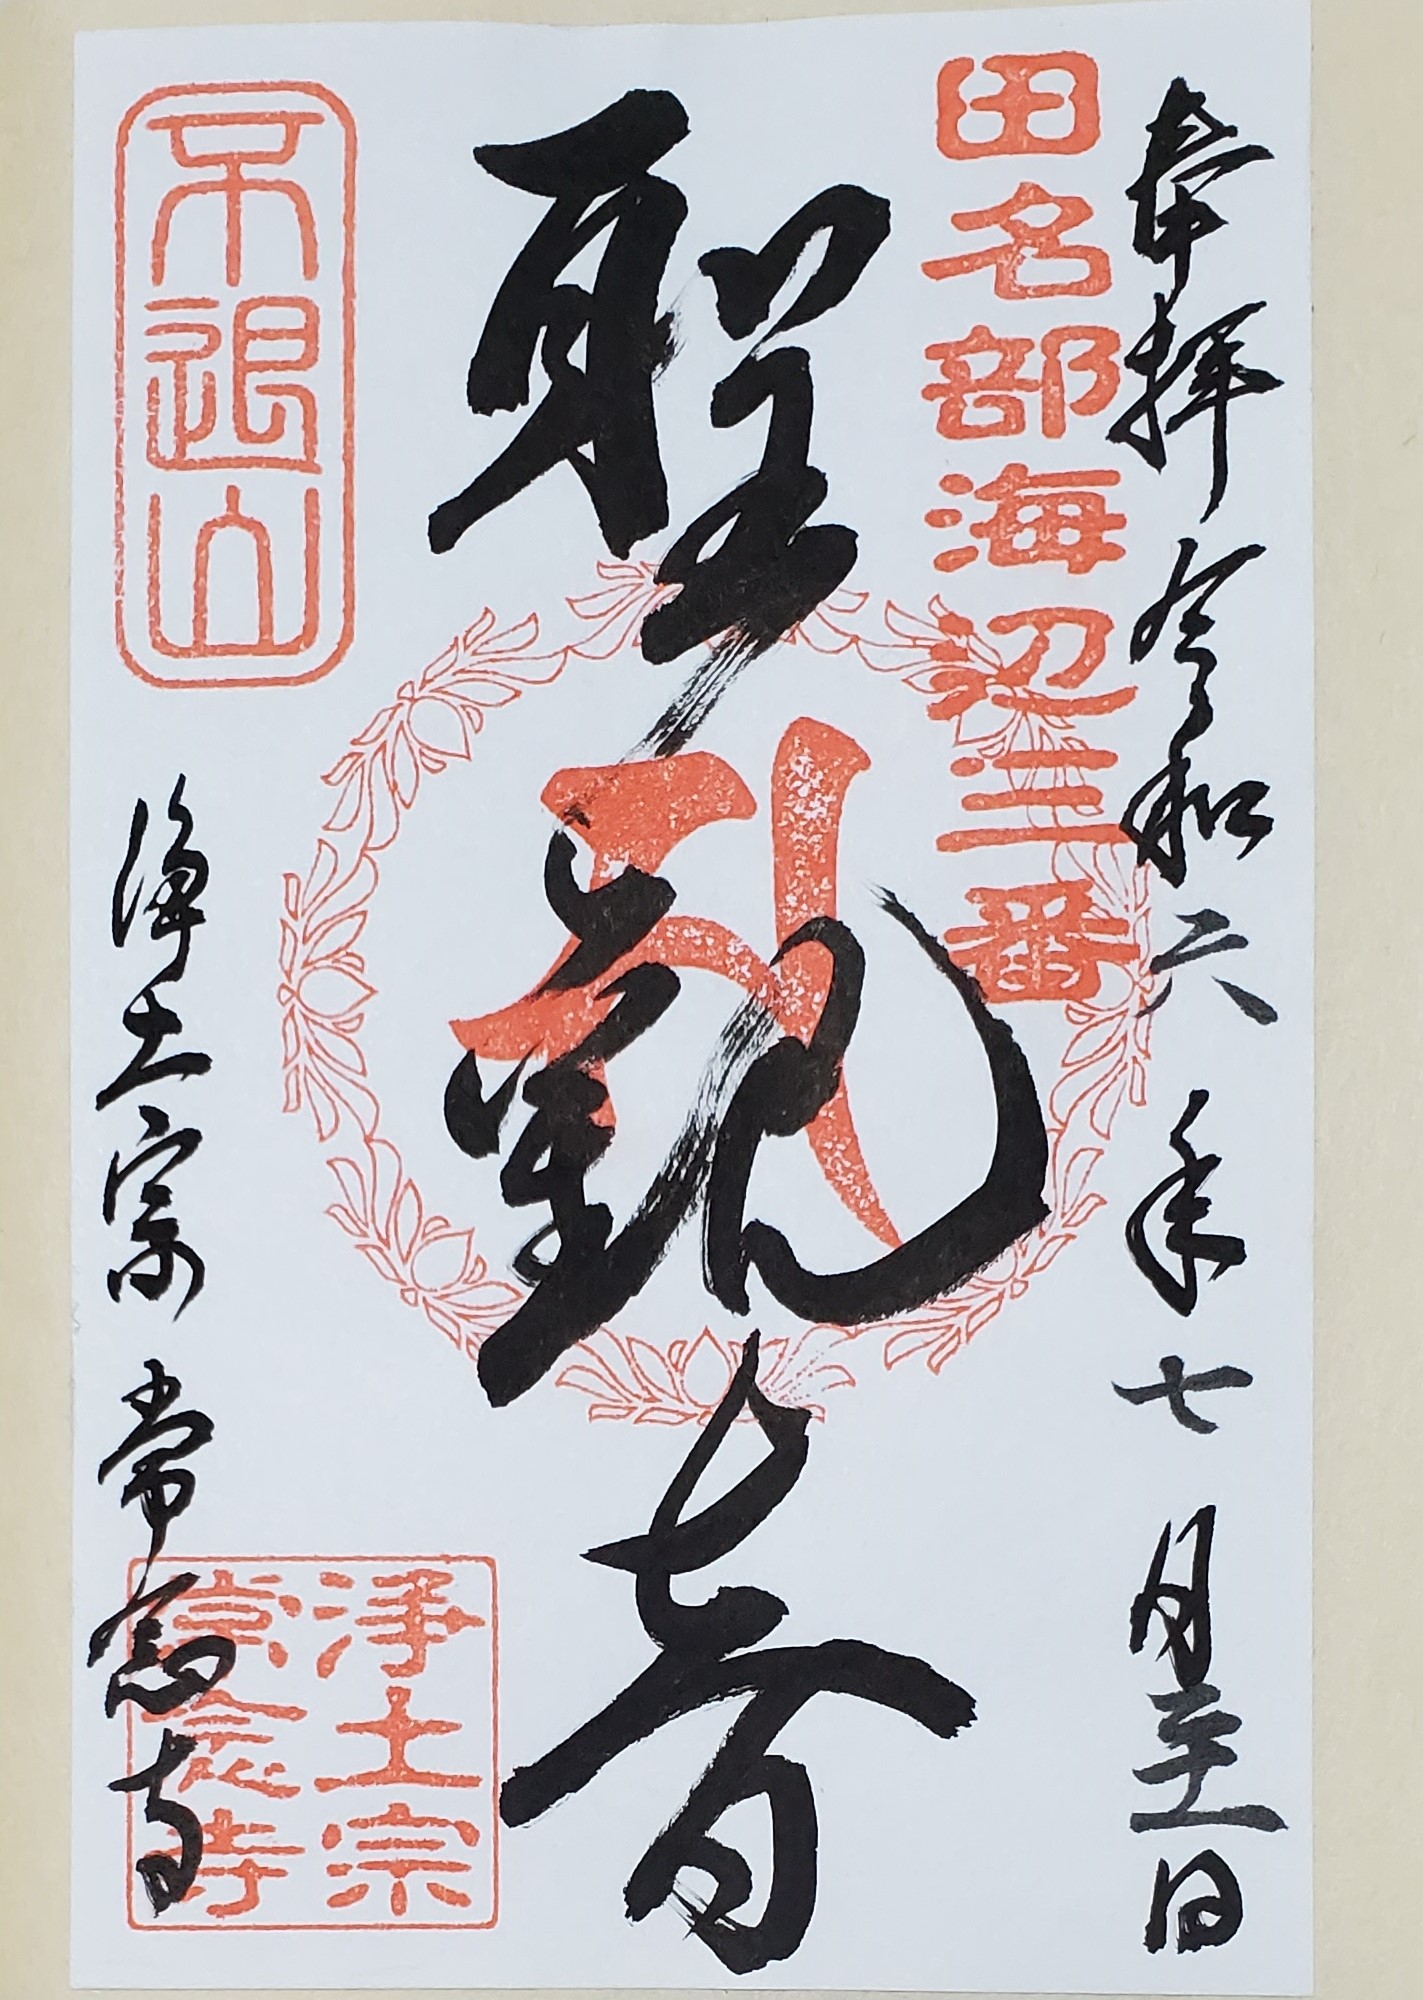 奉拝 令和六年七月二十一日
田名部海辺三番
聖観音
不退山
浄土宗 常念寺
浄土宗
常念寺